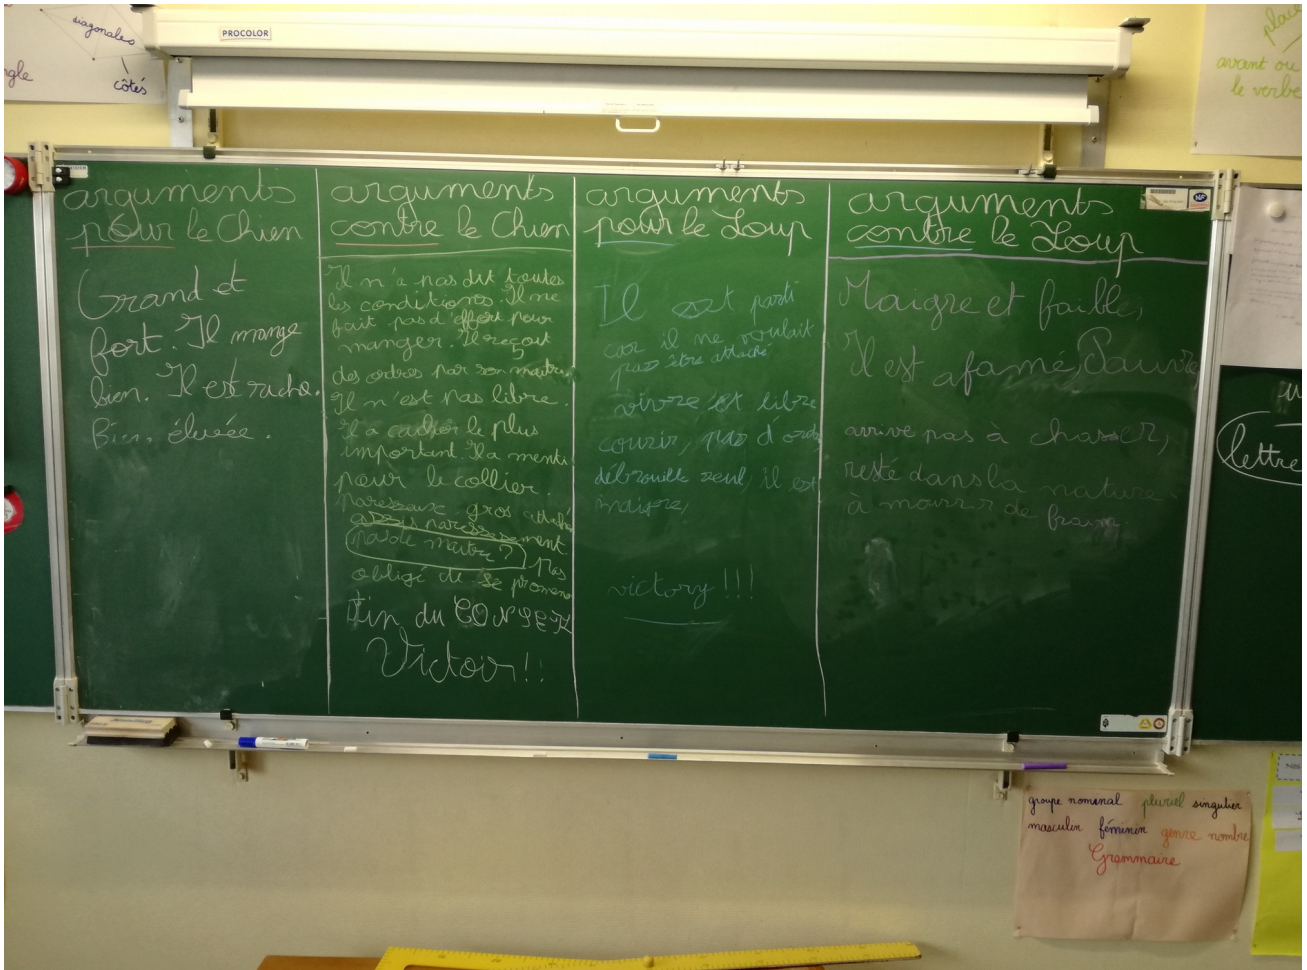 diagonales
côtés
PROCOLOR
avant ou
le verbe
arguments
pour le Chien
Grand et
fort. Il mange
bien. Il est riche.
Bien élevée.
arguments
contre le Chien
Il n'a pas dit toutes
les conditions. Il ne
fait pas d'effort pour
manger. Il reçoit
des ordres par son maître.
Il n'est pas libre.
Il a cacher le plus
important. Il a menti
pour le collier.
paressaux gros attaché
pas de maître ?
pas
obligé de se promene
Fin du
Victoir!!
arguments
pour le Loup
Il est parti
car il ne voulait
pas être attaché
vivre et libre
courir, pas d'ordre
débrouille seul, il est
maigre,
victory !!!
arguments
contre le Loup
Maigre et faible,
Il est afamé, Pauvre
arrive pas à chasser,
resté dans la nature
à mourir de
lettre
groupe nominal pluriel singulier
masculin féminin genre nombre
Grammaire